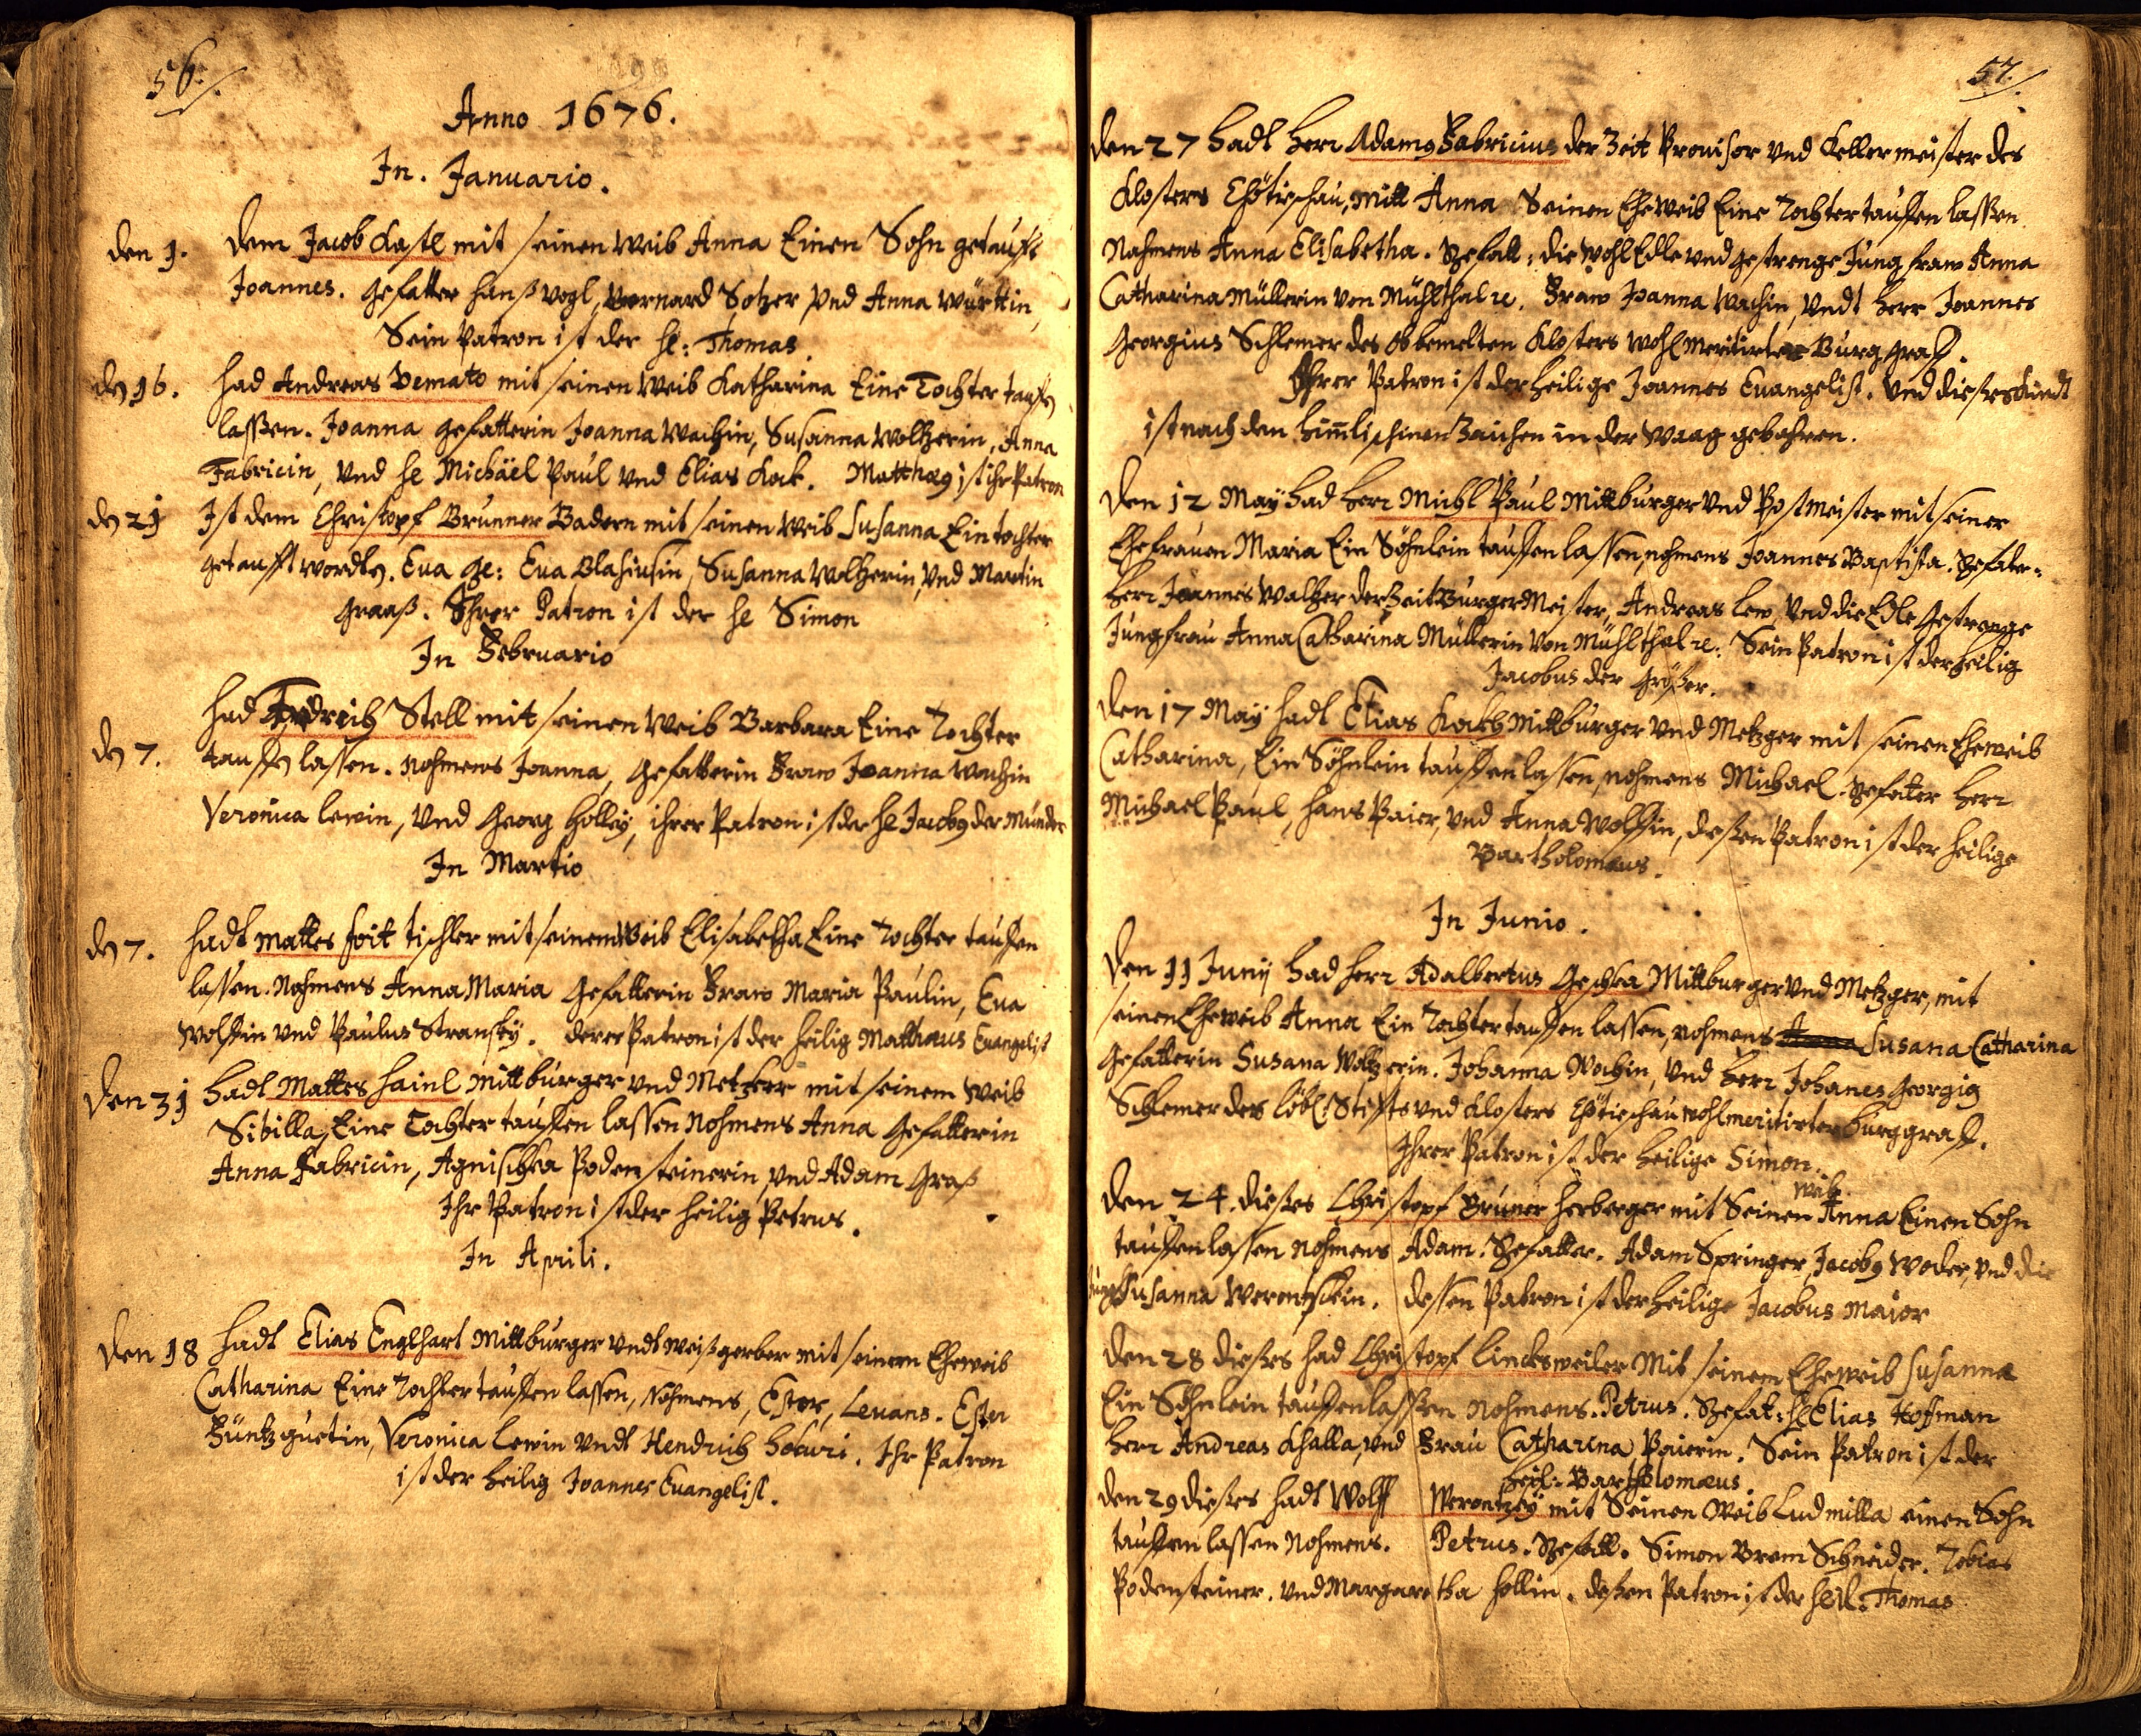 56.
Anno 1676.
In. Januario.
den 1. dem Jacob Kastl mit seinen weib Anna Einen Sohn getaufft
Joannes. gefatter hanß vogl, Bernard Sotzer vnd Anna württin,
Sein Patron ist der hl: Thomas.
den 16. had Andreas Demato mit seinen weib Katharina Eine Tochter tauffen
lassen. Joanna gefatterin Joanna Wachin, Susanna Woltzerin, Anna
Fabricin, vnd hl Michäel Paul vnd Elias Kock. Matthæg ist ihr Patron
den 21 Ist dem Christopf Brunner Badern mit seinen weib Susanna Ein tochter
getaufft wordten. Eua ge: Eua Blasiusin, Susanna Woltzerin, vnd Martin
Graaß. Ihrer Patron ist der hl Simon
In Februario
had Fridrich Stell mit seinen weib Barbara Eine Tochter
den 7. tauffen lassen. nohmens Joanna, gefatterin Fraw Joanna Wachin
Veronica lewin, vnd Georg holley, ihrer Patron ist der hl Jacobg der Münder
In Martio
den 7. hadt mattes foit tischler mit seinem Weib Elisabetha Eine Tochter tauffen
lassen. Nohmens Anna Maria gefatterin Fraw Maria Paulin, Eua
Wolffin vnd Paulus Stransky. derer Patron ist der heilig Matthæus Euangelist
den 31 hadt Mattes hainl mittburger vnd Metzker mit seinem Weib
Sibilla, Eine Tochter tauffen lassen Nohmens Anna Gefatterin
Anna Fabricin, Agnischka Podensteinerin, vnd Adam Graß
Ihr Patron ist der heilig Petrus.
In Aprili.
den 18 hadt Elias Englhart Mittburger vndt weißgerber mit seinem Eheweib
Catharina Eine Tochter tauffen lassen, Nohmens, Ester, Leuans. Ester
Züntzguetin, Veronica Lewin vndt Hendrich hokuri. Ihr Patron
ist der heilig Joannes Euangelist.
57.
den 27 hadt herr Adamg Fabricius der Zeit Prouisor vnd Kellermeister des
Klosters Chotieschau, mitt Anna Seinen Eheweib Eine Tochter tauffen lassen
Nahmens Anna Elisabetha. Gefatt: die wohl Edle vnd gestrenge Jungfraw Anna
Catharina Müllerin von Mühlthal ꝛc. Fraw Joanna Wachin, vndt herr Joannes
Georgius Schlemer des obbemelten Klosters wohlmeritirter Burggraff.
Ihrer Patron ist der heilige Joannes Euangelist. vnd dießes Kindt
ist nach dem himlischen Zaichen in der Waag gebohren.
den 12 May had herr Michl Paul Mittburger vnd Postmeister mit seiner
Ehefrauen Maria Ein Söhnlein tauffen lassen, nohmens Joannes Baptista. Gefater:
herr Joannes Waltzer der Zeit BurgerMeister, Andreas lew, vnd die Edle Gestrenge
Jungfrau Anna Catharina Müllerin von Mühlthal ꝛc: Sein Patron ist der heilig
Jacobus der größer.
den 17 May hadt Elias Kockh Mittburger vnd Metzger mit seinen Eheweib
Catharina, Ein Söhnlein tauffen lassen, nohmens Michael. Gefatter herr
Michael Paul, hans Paier, vnd Anna Wolffin, deßen Patron ist der heilige
Bartholomæus.
In Junio.
den 11 Junij had herr Adalbertus Geschka Mittburger vnd Metzger, mit
seinen Eheweib Anna Ein Tochter tauffen lassen, nohmens Anna Susana Catharina
Gefatterin Susana Woltzerin. Johanna Wachin, vnd herr Johanes Georgig
Schlemer des löbl: Stiffts vnd Klosters Chotieschau wohlmeritirter burggraff.
Ihrer Patron ist der heilige Simon.
weib
den 24. dießes Christopf Bruner herberger mit Seinen Anna Einen Sohn
tauffen lassen nohmens Adam. Gefatter. Adam Springer, Jacobg Woder, vnd die
Jungf Susanna Werontzkin. dessen Patron ist der heilige Jacobus Maior
den 28 dießes had Christopf Lincksweiler Mit seinem Eheweib Susanna
Ein Söhnlein tauffen lassen Nohmens. Petrus. Gefat: hl Elias Hoffman
herr Andreas Khalla, vnd Frau Catharina Paierin. Sein Patron ist der
heil: Bartholomæus.
den 29 dießes hadt Wolff Werontzky mit Seinen Weib Ludmilla einen Sohn
tauffen lassen Nohmens. Petrus. Gefatt. Simon Brem Schneider. Tobias
Podensteiner. vnd Margaretha hollin. deßen Patron ist der heil: Thomas